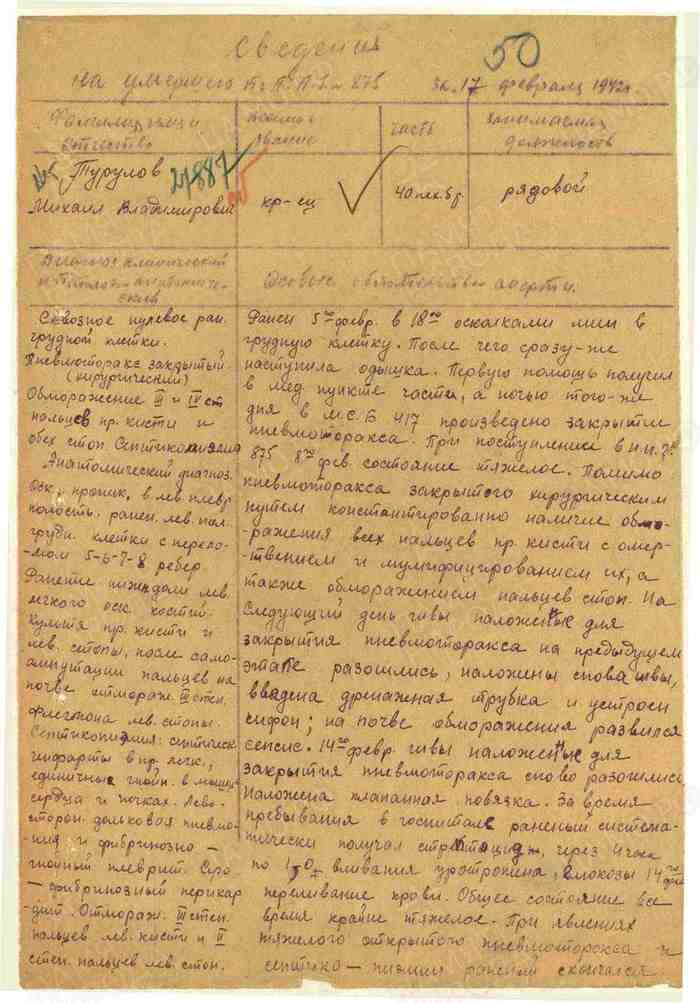 Сведения
50
на умершего в П.П.Г. № 875 за 17 февраля 1942г.
Фамилия, имя и отчество
звание
часть
занимаемая должность
Турулов
Михаил Владимирович
21887
кр-ец
рядовой
Диагноз клинический и патолого-анатомический
Особые обстоятельства смерти.
Сквозное пулевое ран.
грудной клетки.
Пневмоторакс закрытый
(хирургический)
Обморожение III и IV ст
пальцев пр. кисти и
обех стоп. Септикопиемия
Анатомический диагноз.
Оск. проник. в лев. плевр
полость. ранен. лев. пол.
грудн. клетки с перело-
мом 5-6-7-8 ребер.
Ранение нижн. доли лев.
легкого оск. костей.
Культя пр. кисти и
лев. стопы, после само-
ампутации пальцев на
почве отмораж. III степ.
Флегмона лев. стопы.
Септикопиэмия: септическ
инфаркты в пр. легк.,
единичные гнойн. в мышце
сердца и почках. Лево-
сторон. дольковая пневмо-
ния и фибринозно-
гнойный плеврит. Серо
— фибринозный перикар
дит. Отмораж. III степ.
пальцев лев. кисти и II
степ. пальцев лев. стоп.
Ранен 5го февр. в 18оо осколками мин в
грудную клетку. После чего сразу-же
наступила одышка. Первую помощь получил
в мед. пункте части, а ночью того-же
дня в м.с.б 417 произведено закрытие
пневмоторакса. При поступлении в п.п.г.
875 8го фев. состояние тяжелое. Помимо
пневмоторакса закрытого хирургическим
путем константированно наличие обмо-
ражения всех пальцев пр. кисти с омер-
твением и мумифицированием их, а
также обморажением пальцев стоп. На
следующий день швы, наложенные для
закрытия пневмоторакса на предыдущем
этапе разошлись, наложены снова швы,
введена дренажная трубка и устроен
сифон; на почве обморажения развился
сепсис. 14го февр. швы наложенные для
закрытия пневмоторакса снова разошлись
наложена клапанная повязка. За время
пребывания в госпитале раненый система-
тически получал стрептоцид, через 4 часа
по 1,0, вливания уротропина, глюкозы 14го фев
переливание крови. Общее состояние все
время крайне тяжелое. При явлениях
тяжелого открытого пневмоторакса и
септико-пиэмии раненый скончался